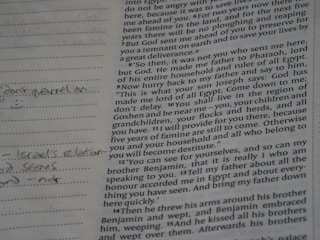 into Egypt
here, because it was to save lives
me ahead of you. ⁶For two years now there
been famine in the land, and for the next
years there will be no ploughing and reaping.
⁷But God sent me ahead of you to preserve for
you a remnant on earth and to save your lives by
a great deliverance.
⁸'So then, it was not you who sent me,
but God. He made me father to Pharaoh, lord
of his entire household and ruler of all Egypt.
⁹Now hurry back to my father and say to him,
"This is what your son Joseph says: God has
made me lord of all Egypt. Come down to me;
don't delay. ¹⁰You shall live in the region of
Goshen and be near me – you, your children and
grandchildren, your flocks and herds, and all
you have. ¹¹I will provide for you there, because
five years of famine are still to come. Otherwise
you and your household and all who belong to
you will become destitute."
¹²'You can see for yourselves, and so can my
brother Benjamin, that it is really I who am
speaking to you. ¹³Tell my father about all the
honour accorded me in Egypt and about every-
thing you have seen. And bring my father down
here quickly.'
¹⁴Then he threw his arms around his brother
Benjamin and wept, and Benjamin embraced
him, weeping. ¹⁵And he kissed all his brothers
and wept over them. Afterwards his brothers
palace
don't quarrel on
- Israel's relation